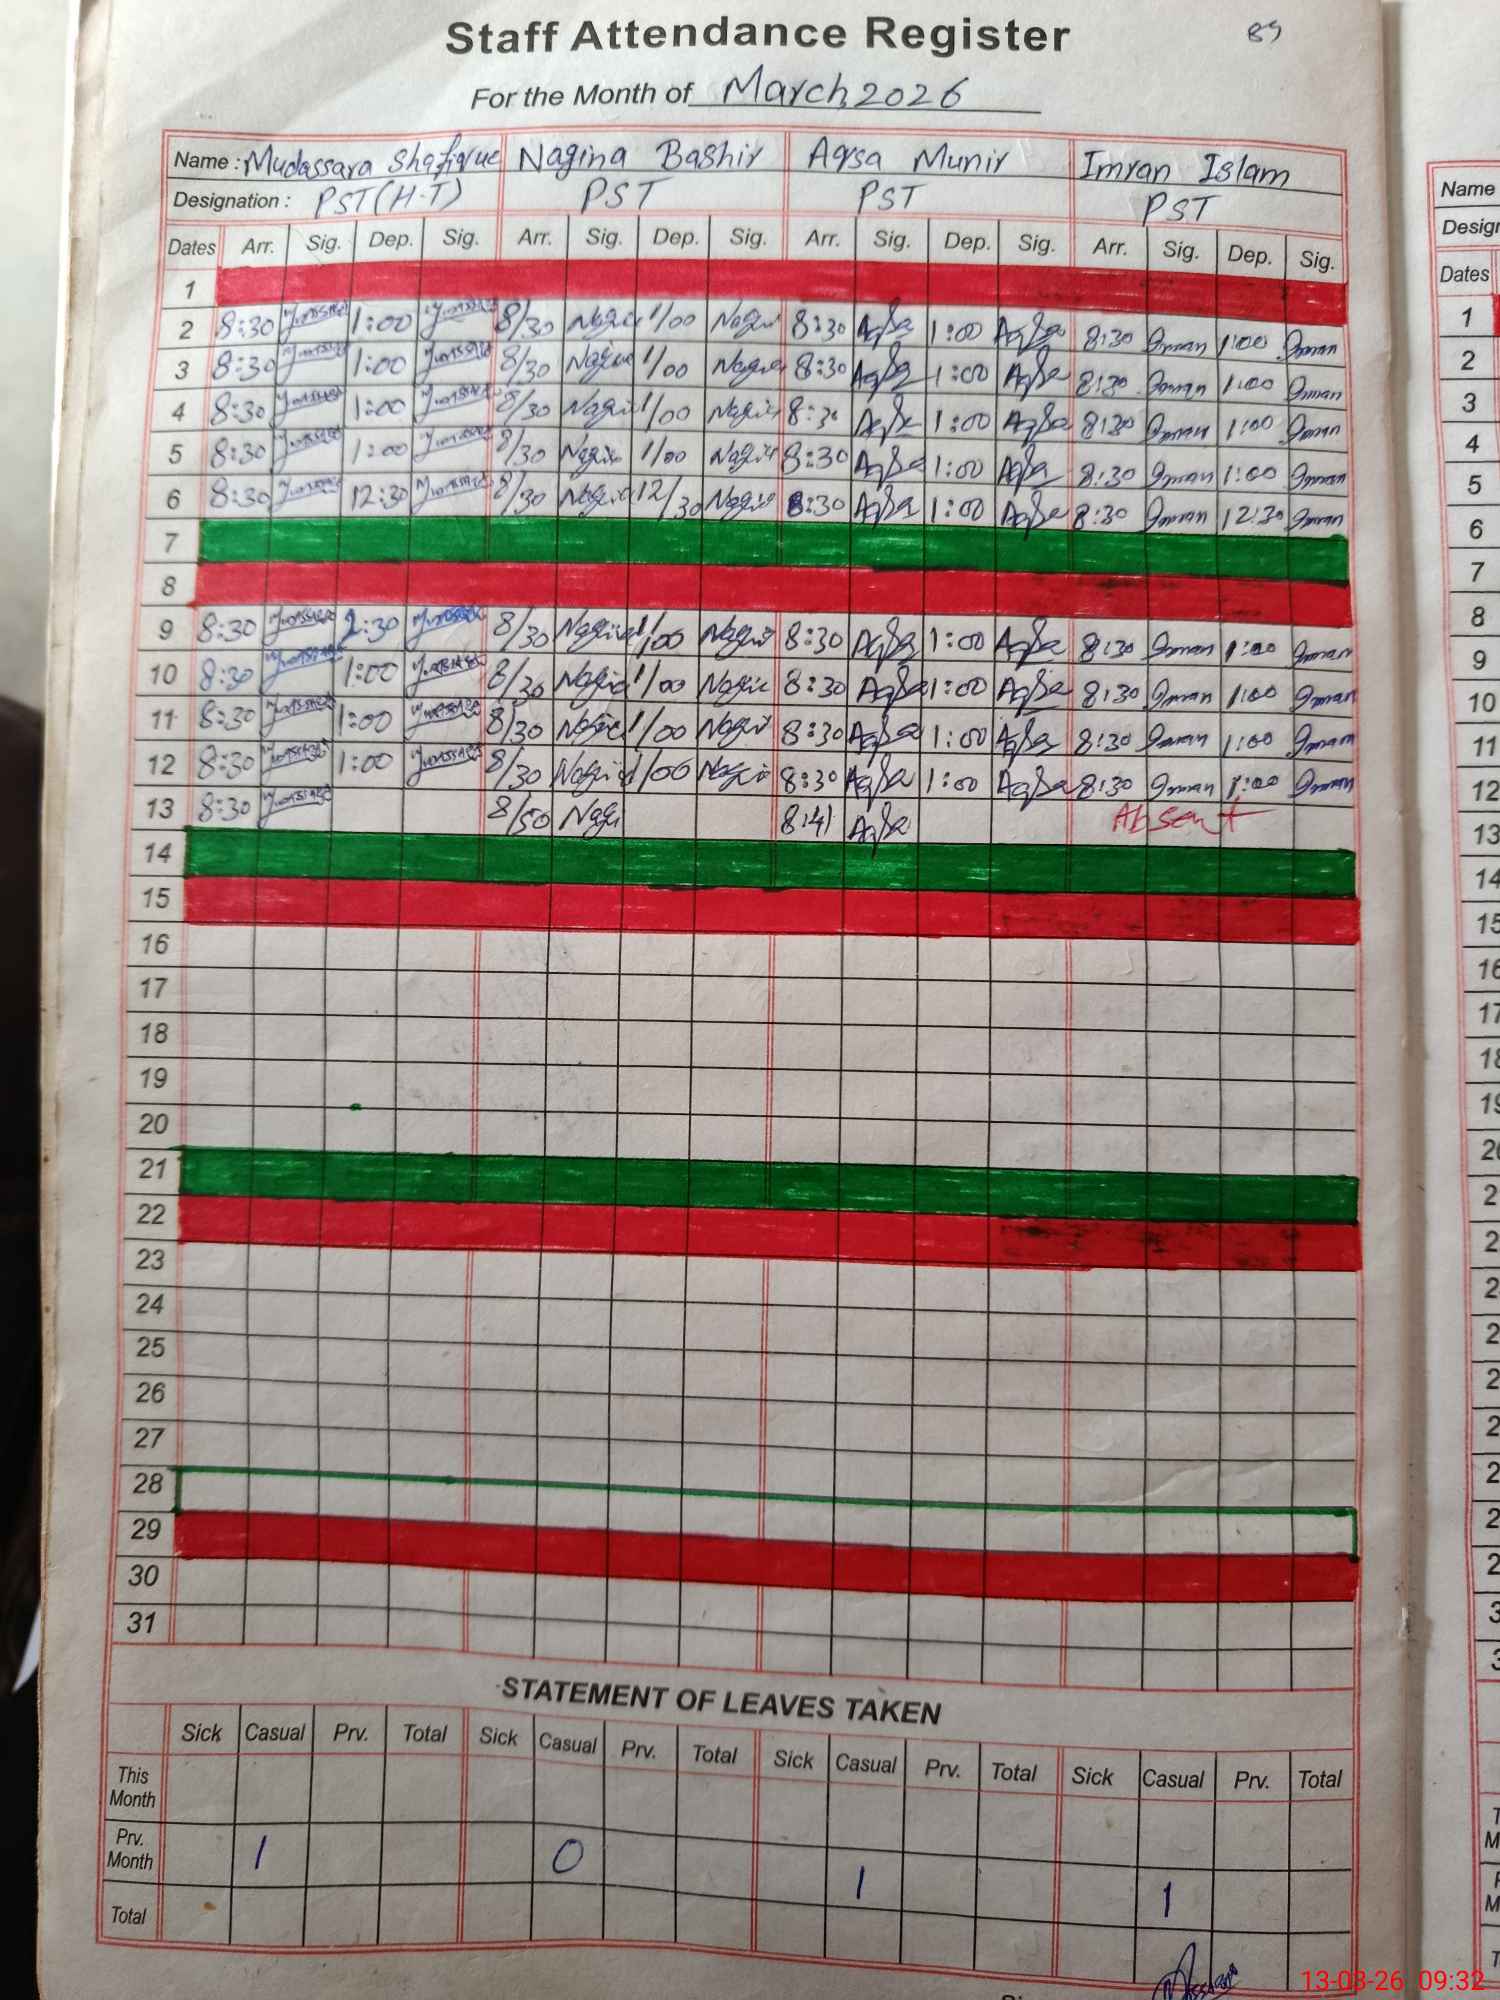 Staff Attendance Register
89
For the Month of March, 2026
Name : Mudassara Shafique Nagina Bashir Aqsa Munir Imran Islam
Designation : PST (H.T) PST PST PST
Dates Arr. Sig. Dep. Sig. Arr. Sig. Dep. Sig. Arr. Sig. Dep. Sig. Arr. Sig. Dep. Sig.
1
2 8:30 1:00 8/30 1/00 8:30 Aqsa 1:00 Aqsa 8:30 Imran 1:00 Imran
3 8:30 1:00 8/30 1/00 8:30 Aqsa 1:00 Aqsa 8:30 Imran 1:00 Imran
4 8:30 1:00 8/30 1/00 8:30 Aqsa 1:00 Aqsa 8:30 Imran 1:00 Imran
5 8:30 1:00 8/30 1/00 8:30 Aqsa 1:00 Aqsa 8:30 Imran 1:00 Imran
6 8:30 12:30 8/30 12/30 8:30 Aqsa 1:00 Aqsa 8:30 Imran 12:30 Imran
7
8
9 8:30 2:30 8/30 1/00 8:30 Aqsa 1:00 Aqsa 8:30 Imran 1:00 Imran
10 8:30 1:00 8/30 1/00 8:30 Aqsa 1:00 Aqsa 8:30 Imran 1:00 Imran
11 8:30 1:00 8/30 1/00 8:30 Aqsa 1:00 Aqsa 8:30 Imran 1:00 Imran
12 8:30 1:00 8/30 1/00 8:30 Aqsa 1:00 Aqsa 8:30 Imran 1:00 Imran
13 8:30 8/50 8:41 Aqsa Absent
14
15
16
17
18
19
20
21
22
23
24
25
26
27
28
29
30
31
STATEMENT OF LEAVES TAKEN
Sick Casual Prv. Total Sick Casual Prv. Total Sick Casual Prv. Total Sick Casual Prv. Total
This Month
Prv. Month 1 0 1 1
Total
13-03-26 09:32
Name
Dates
1
2
3
4
5
6
7
8
9
10
11
12
13
14
15
16